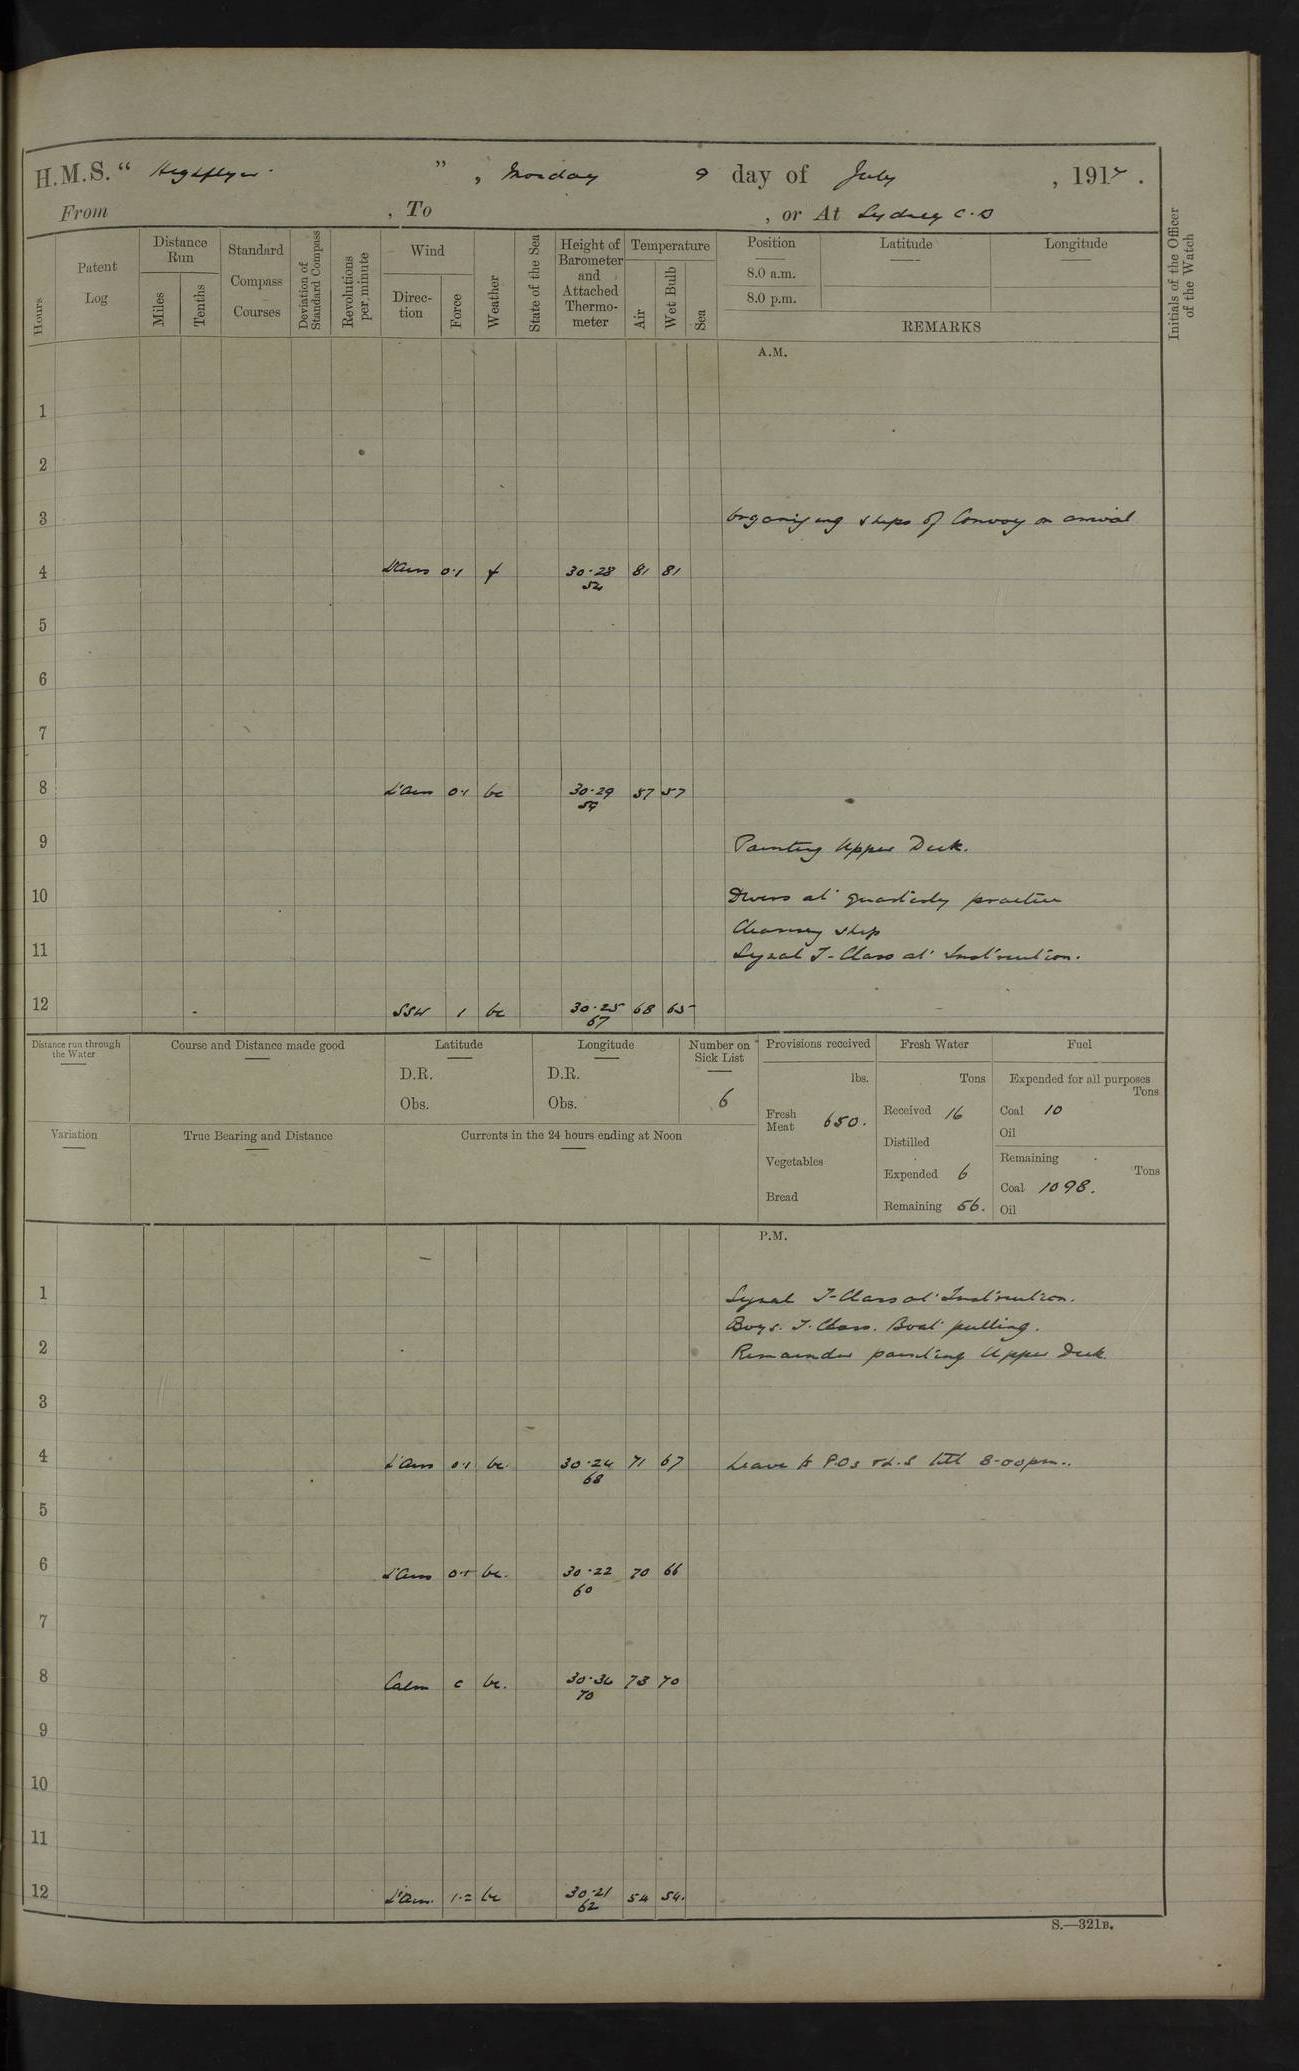 H.M.S. " Highflyer. ", Monday 9 day of July, 1917.
From , To , or At Sydney C.B
Hours
Patent Log
Distance Run
Miles
Tenths
Standard Compass Courses
Deviation of Standard Compass
Revolutions per minute
Wind
Direction
Force
Weather
State of the Sea
Height of Barometer and Attached Thermometer
Temperature
Air
Wet Bulb
Sea
Position
8.0 a.m.
8.0 p.m.
Latitude
Longitude
REMARKS
Initials of the Officer of the Watch
A.M.
1
2
3 Organising ships of Convoy on arrival
4 L'airs 0·1 f 30·28 52 81 81
5
6
7
8 L'airs 0·1 bc 30·29 59 57 57
9 Painting Upper Deck.
10 Divers at quarterly practice
Cleaning ship
11 Signal T-Class at Instruction.
12 SSW 1 bc 30·25 67 68 65
Distance run through the Water
Course and Distance made good
Latitude
D.R.
Obs.
Longitude
D.R.
Obs.
Number on Sick List
6
Provisions received
lbs.
Fresh Meat 650.
Vegetables
Bread
Fresh Water
Tons
Received 16
Distilled
Expended 6
Remaining 56.
Fuel
Expended for all purposes
Tons
Coal 10
Oil
Remaining
Tons
Coal 1098.
Oil
Variation
True Bearing and Distance
Currents in the 24 hours ending at Noon
P.M.
1 Signal T-Class at Instruction.
Boys. T. Class. Boat pulling.
2 Remainder painting Upper Deck.
3
4 L'airs 0·1 bc. 30·24 68 71 67 Leave to P.Os & L.S till 8-00pm.
5
6 L'airs 0·1 bc. 30·22 60 70 66
7
8 Calm c bc. 30·34 70 73 70
9
10
11
12 L'airs. 1·2 bc 30·21 62 54 54.
S.—321B.